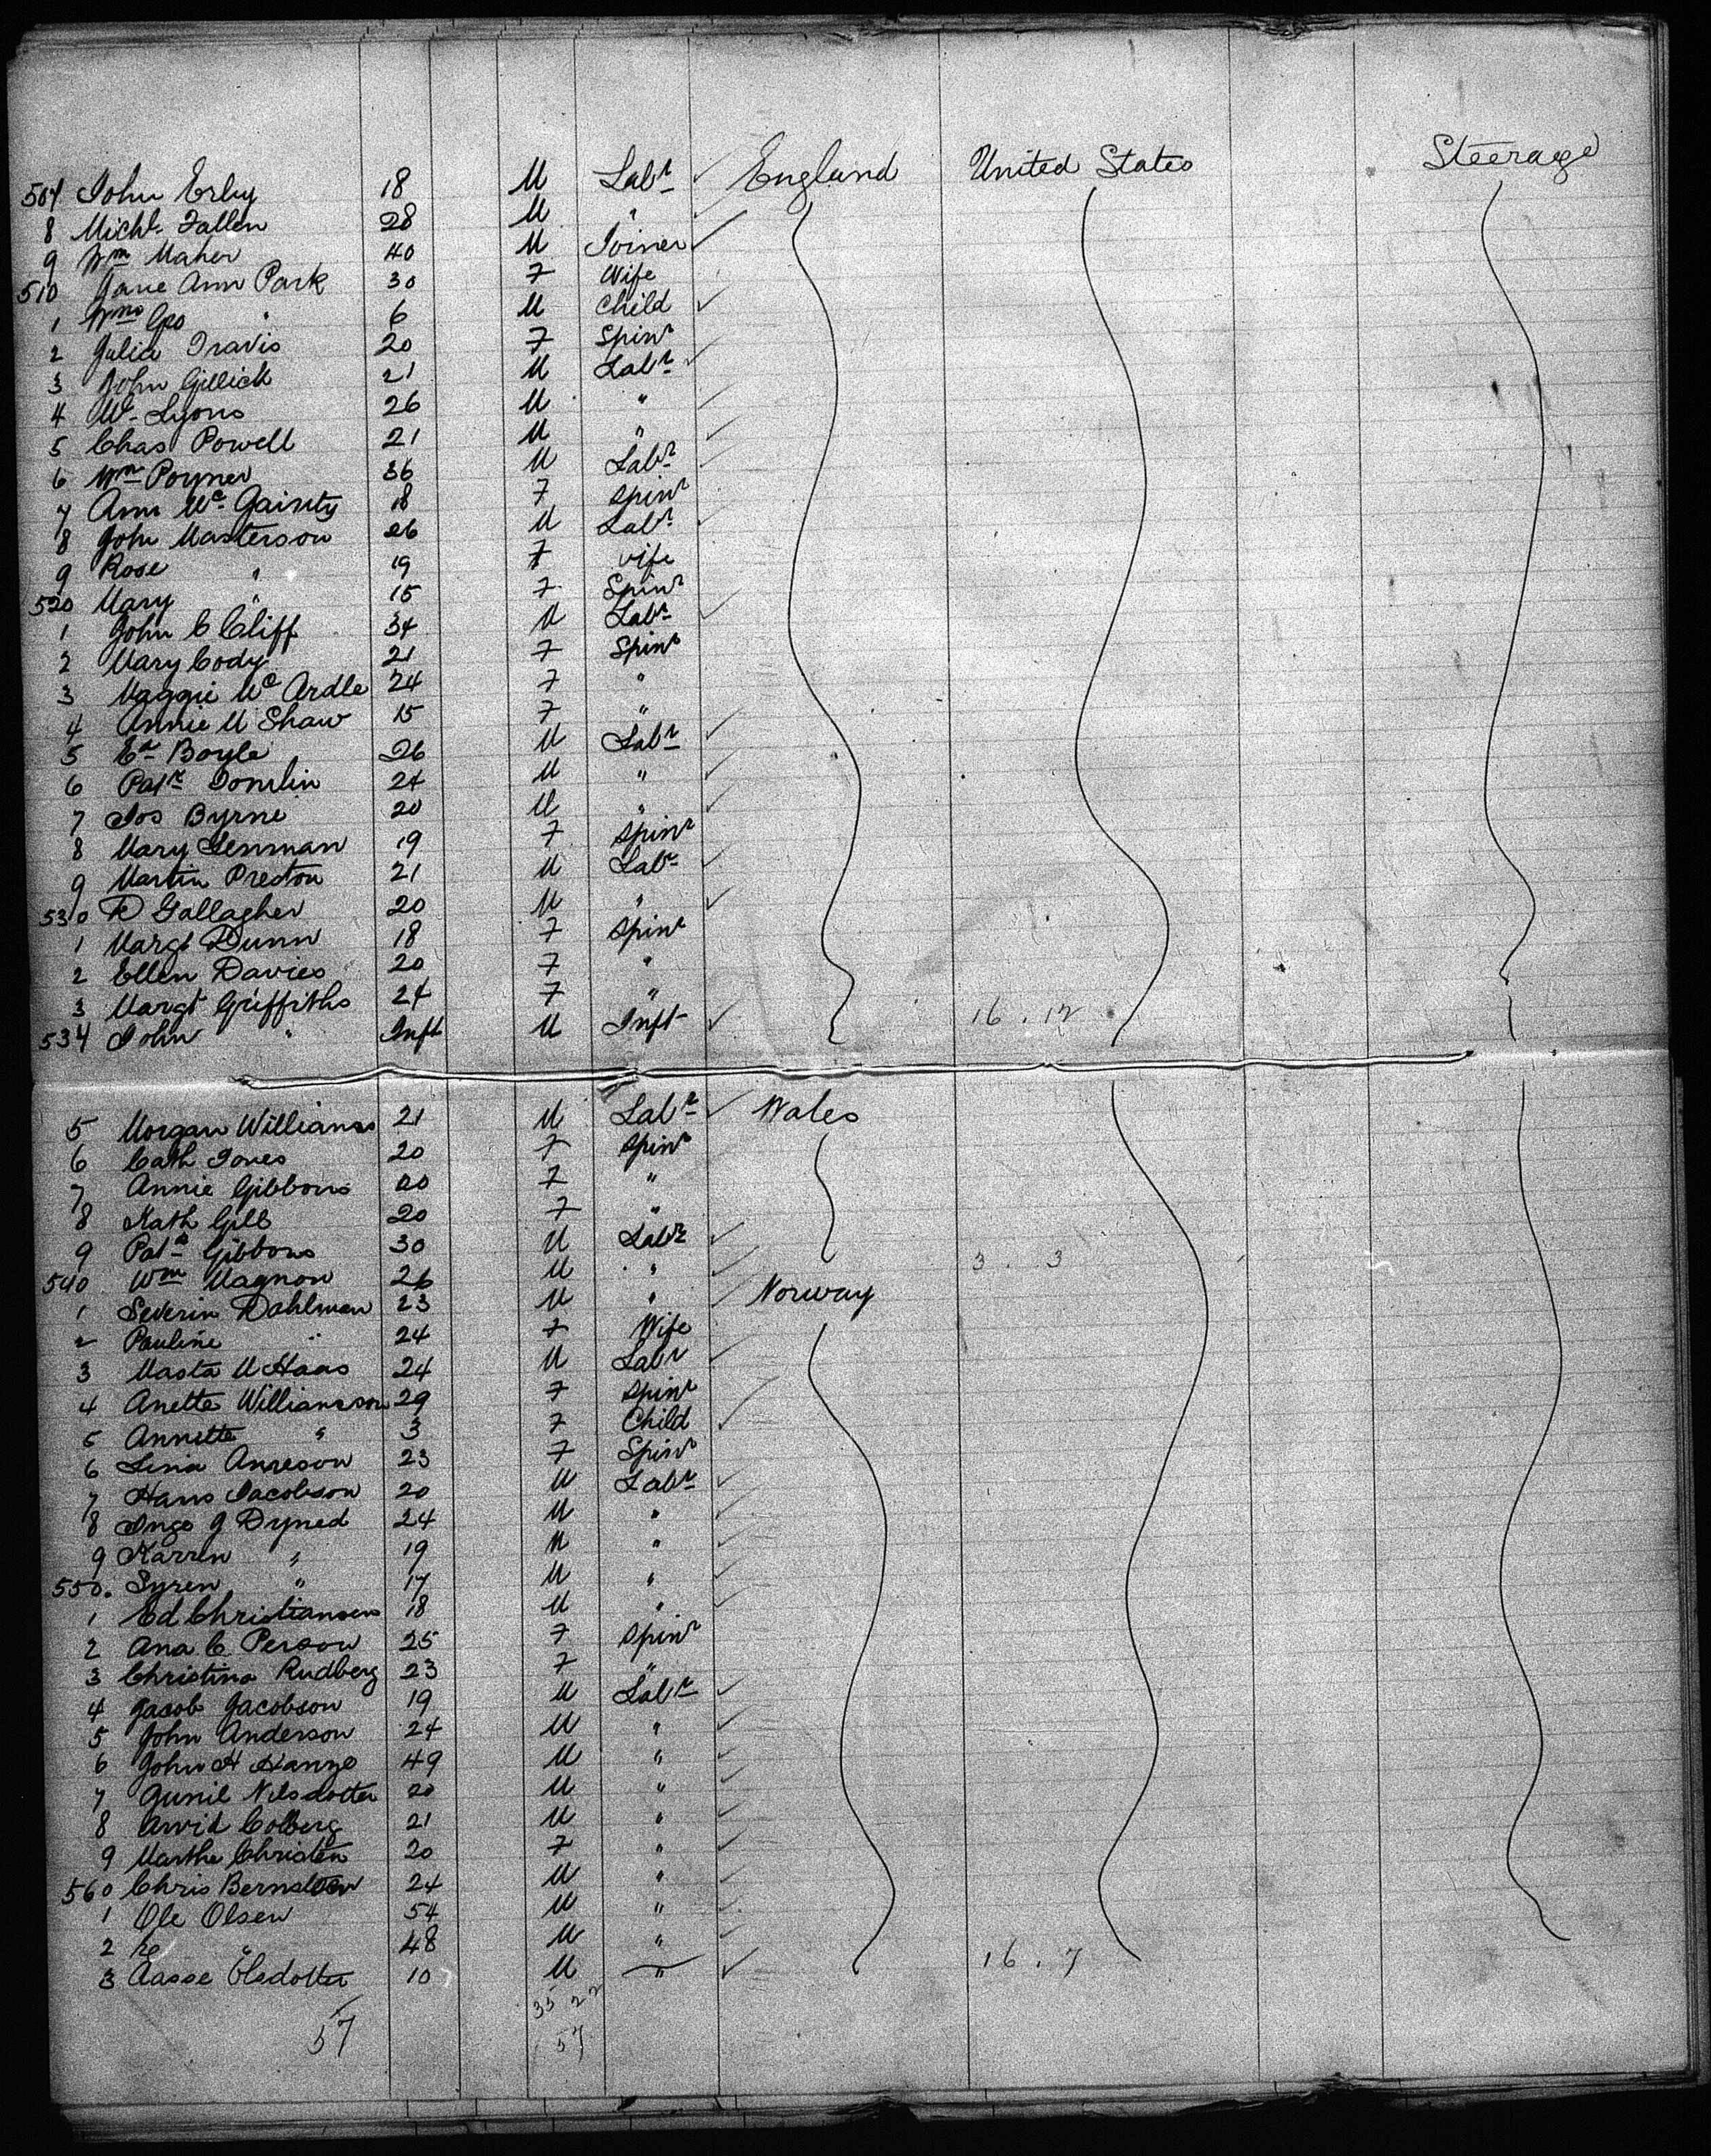 507 John Erby 18 M Labr England United States Steerage
8 Michl Fallen 28 M "
9 Wm Maher 40 M Joiner
510 Jane Ann Park 30 F Wife
1 Wm Geo " 6 M Child
2 Julia Travis 20 F Spinr
3 John Gillick 21 M Labr
4 M Lyons 26 M "
5 Chas Powell 21 M "
6 Wm Poyner 36 M Labr
7 Ann Mc Gainty 18 F Spinr
8 John Masterson 26 M Labr
9 Rose " 19 F Wife
520 Mary " 15 F Spinr
1 John C Cliff 34 M Labr
2 Mary Cody 21 F Spinr
3 Maggie Mc Ardle 24 F "
4 Annie M Shaw 15 F "
5 Ed Boyle 26 M Labr
6 Patk Tomlin 24 M "
7 Jos Byrne 20 M "
8 Mary Lenman 19 F Spinr
9 Martin Preston 21 M Labr
530 R Gallagher 20 M "
1 Margt Dunn 18 F Spinr
2 Ellen Davies 20 F "
3 Margt Griffiths 24 F "
534 John " Inft M Inft 16 . 12
5 Morgan Williams 21 M Labr Wales
6 Cath Jones 20 F Spinr
7 Annie Gibbons 20 F "
8 Kath Gill 20 F "
9 Patk Gibbons 30 M Labr
540 Wm Magnon 26 M " 3 . 3
1 Severin Dahlman 23 M " Norway
2 Pauline " 24 F Wife
3 Masta M Haas 24 M Labr
4 Anette Williamson 29 F Spinr
5 Annette " 3 F Child
6 Lina Anreson 23 F Spinr
7 Hans Jacobson 20 M Labr
8 Inge J Dyned 24 M "
9 Karren " 19 M "
550. Syren " 17 M "
1 Ed Christiansen 18 M "
2 Ana C Person 25 F Spinr
3 Christina Rudberg 23 F "
4 Jacob Jacobson 19 M Labr
5 John Anderson 24 M "
6 John H 49 M "
7 Gunil Nilsdotter 20 M "
8 Arvid Colberg 21 M "
9 Marthe Christen 20 F "
560 Chris Bernstoen 24 M "
1 Ole Olsen 54 M "
2 " 48 M "
3 Aasse Olsdotter 10 M " 16 . 7
33 22
57 57